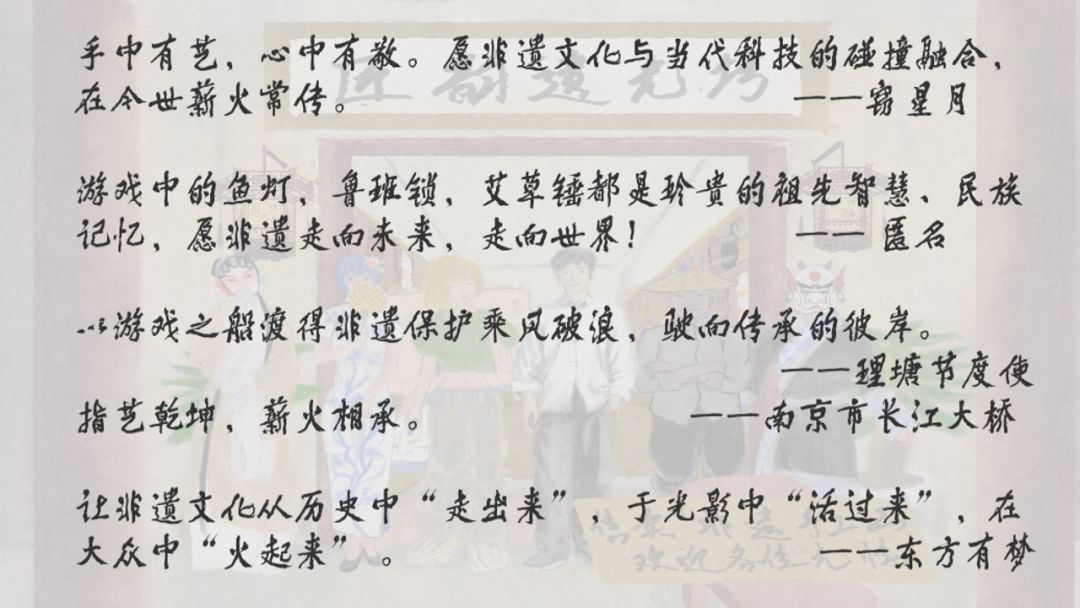 手中有艺，心中有敬。愿非遗文化与当代科技的碰撞融合，
在今世薪火常传。 ——窃星月
游戏中的鱼灯，鲁班锁，艾草锤都是珍贵的祖先智慧、民族
记忆，愿非遗走向未来，走向世界！ ——匿名
以游戏之船渡得非遗保护乘风破浪，驶向传承的彼岸。
——理塘节度使
指艺乾坤，薪火相承。 ——南京市长江大桥
让非遗文化从历史中“走出来”，于光影中“活过来”，在
大众中“火起来”。 ——东方有梦